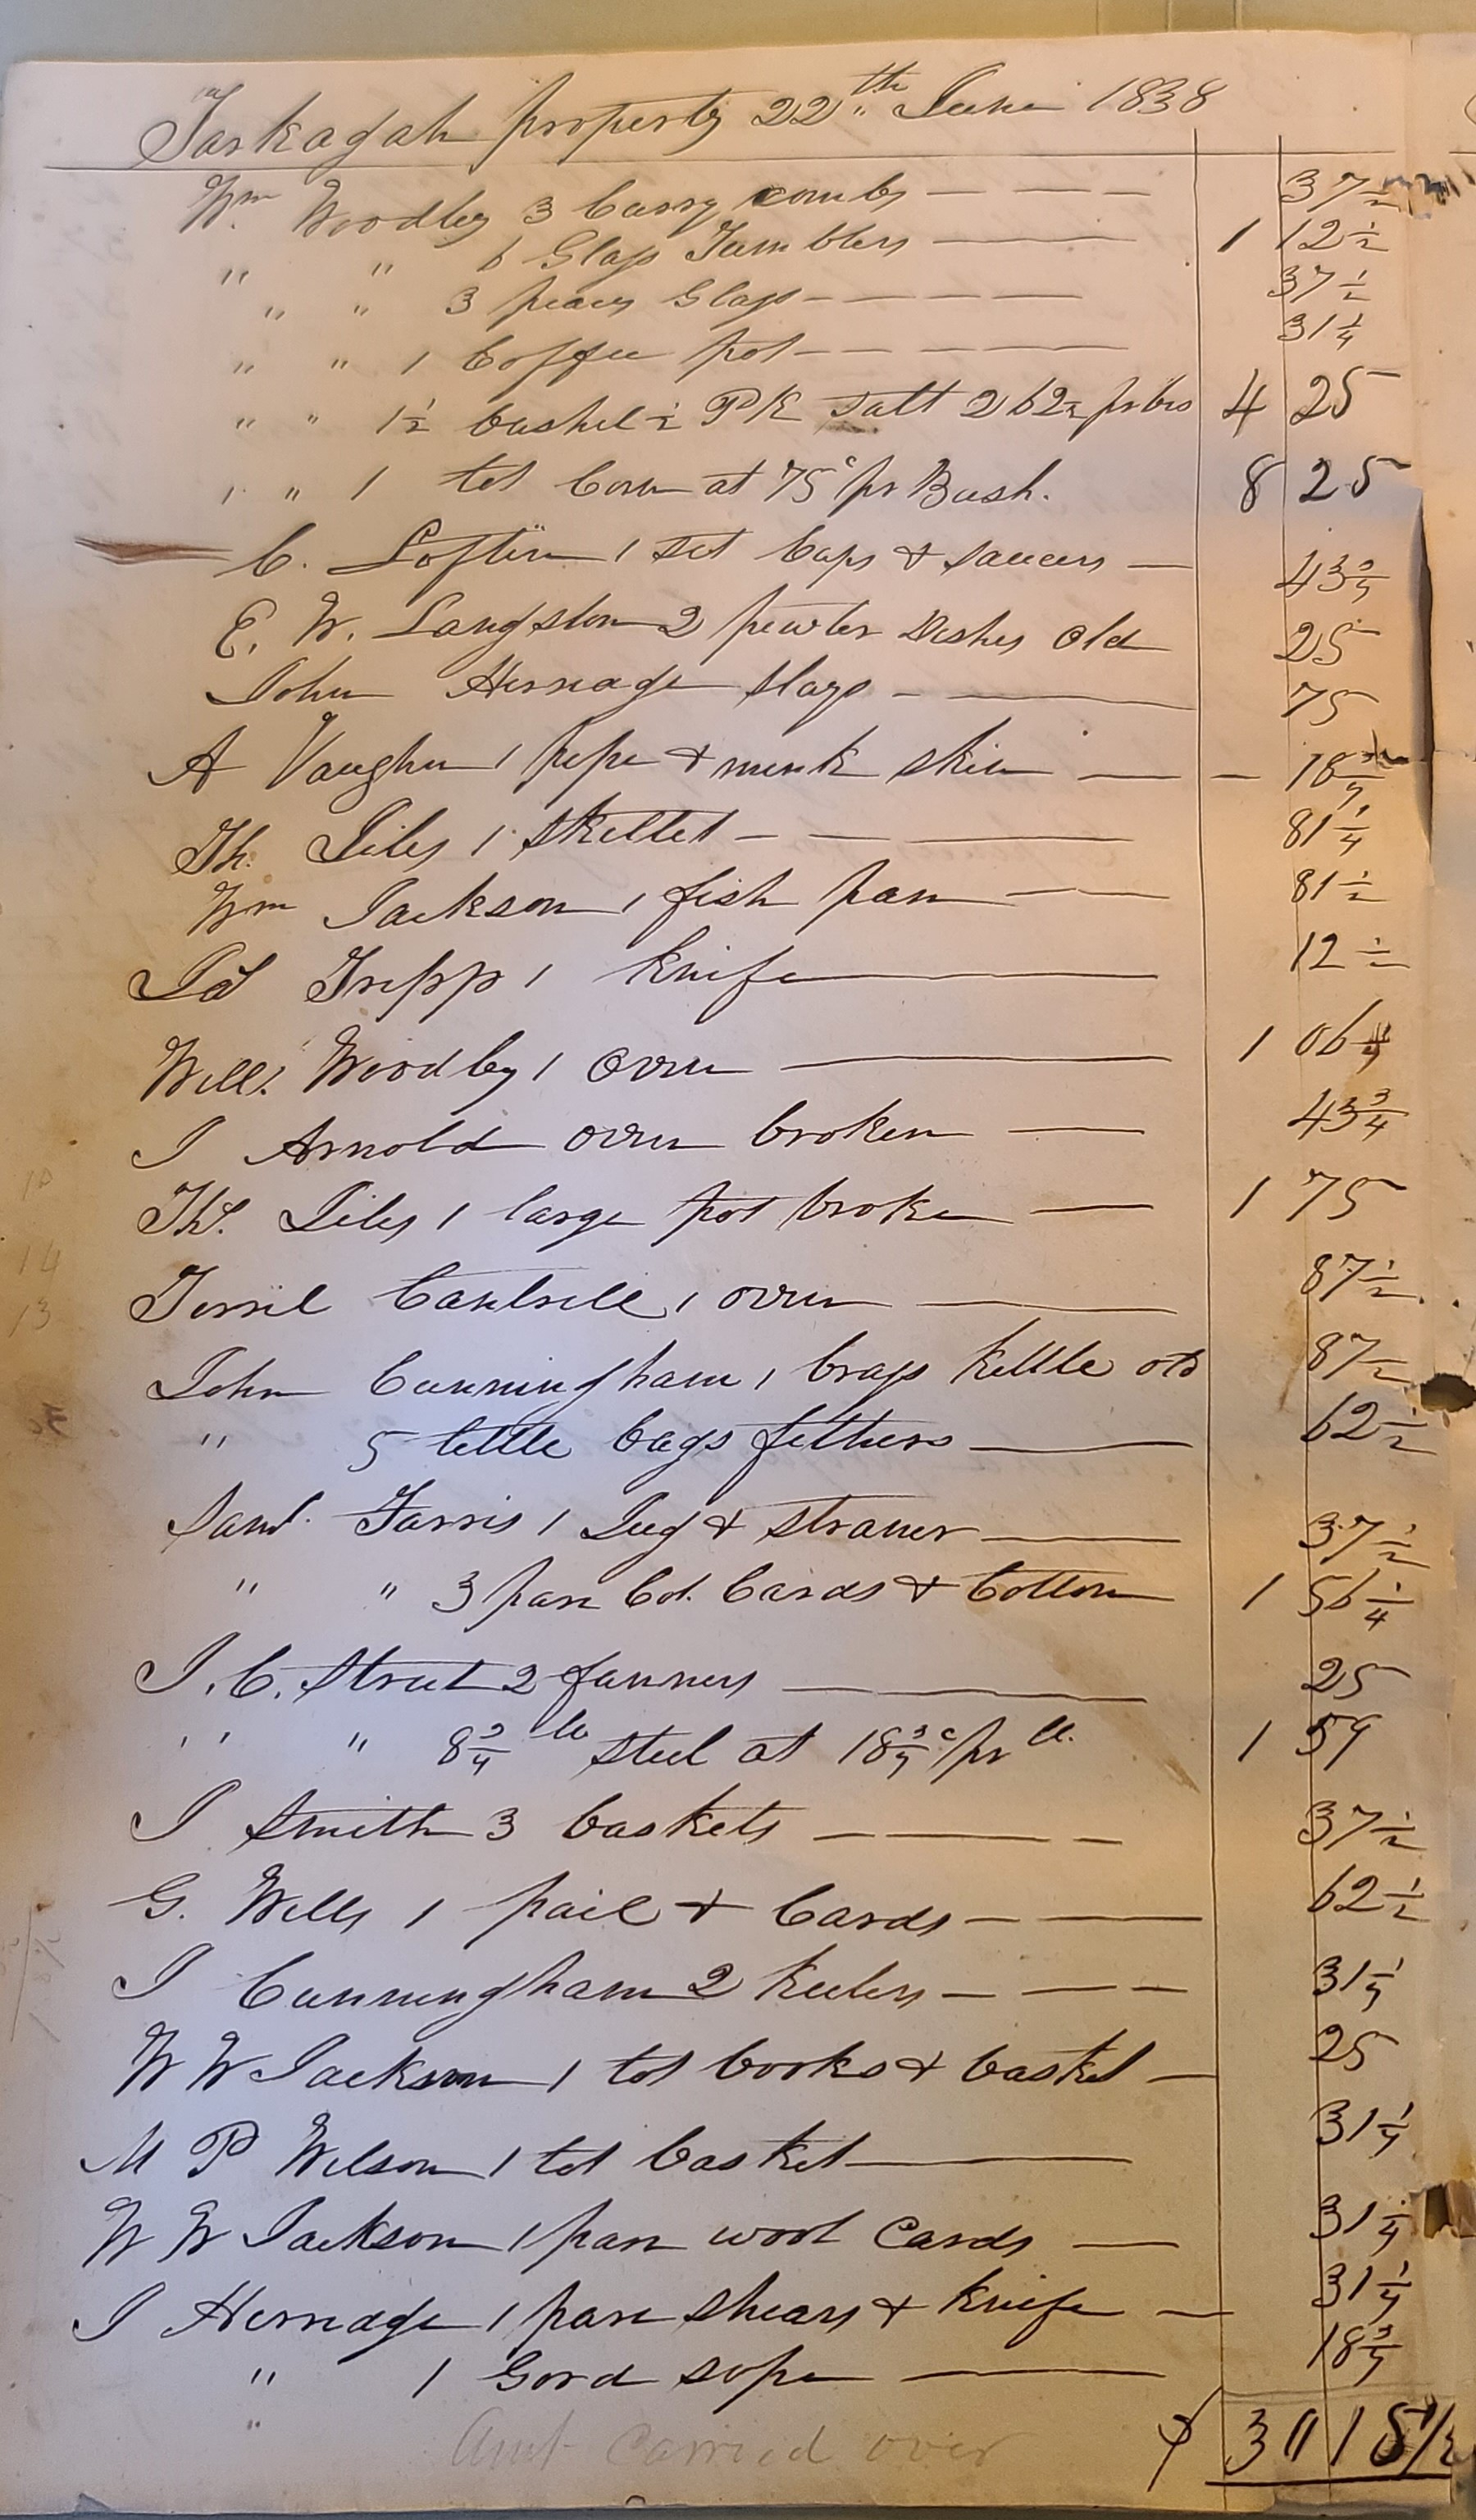 Taskagah property 22th June 1838
Wm Woodby 3 Curry combs — — — 37½
" " 6 Glass Tumblers — 1 12½
" " 3 peaces Glass — — — — 37½
" " 1 Coffee pot — — — — 31¼
" " 1½ bushel ½ PK salt 2 62½ pr bus 4 25
" " 1 lot Corn at 75c pr Bush. 8 25
C. Loften 1 set Cups & saucers — 43¾
E. W. Langston 2 pewter Dishes old 25
John Herreage slays — — 75
A Vaughn 1 pipe & mink skin — — 18¾
Th. Liles 1 skillet — — — 81¼
Wm Jackson 1 fish pan — — 81½
Tripp 1 knife — 12½
Will. Woodby 1 oven — 1 06¼
J Arnold oven broken — 43¾
Ths. Liles 1 large pot broke — 1 75
Terril Cantrell 1 oven — 87½
John Cunningham 1 brass kettle old 87½
" 5 little bags fethers — 62½
Saml. Farris 1 Jug & straner — 37½
" " 3 pare Cot. Cards & Cotton 1 56¼
J. C. Street 2 fanners — 25
" " 8¾ lb steel at 18¾c pr lb. 1 59
J Smith 3 baskets — — — 37½
G. Wells 1 pail & Cards — — 62½
J Cunningham 2 keelers — — — 31¼
W W Jackson 1 lot books & basket — 25
M P Wilson 1 lot basket — 31¼
W W Jackson 1 pare wool Cards — 31¼
J Herreage 1 pare shears & knife — 31¼
" 1 Gord sope — 18¾
" Amt Carried over $ 30 18½